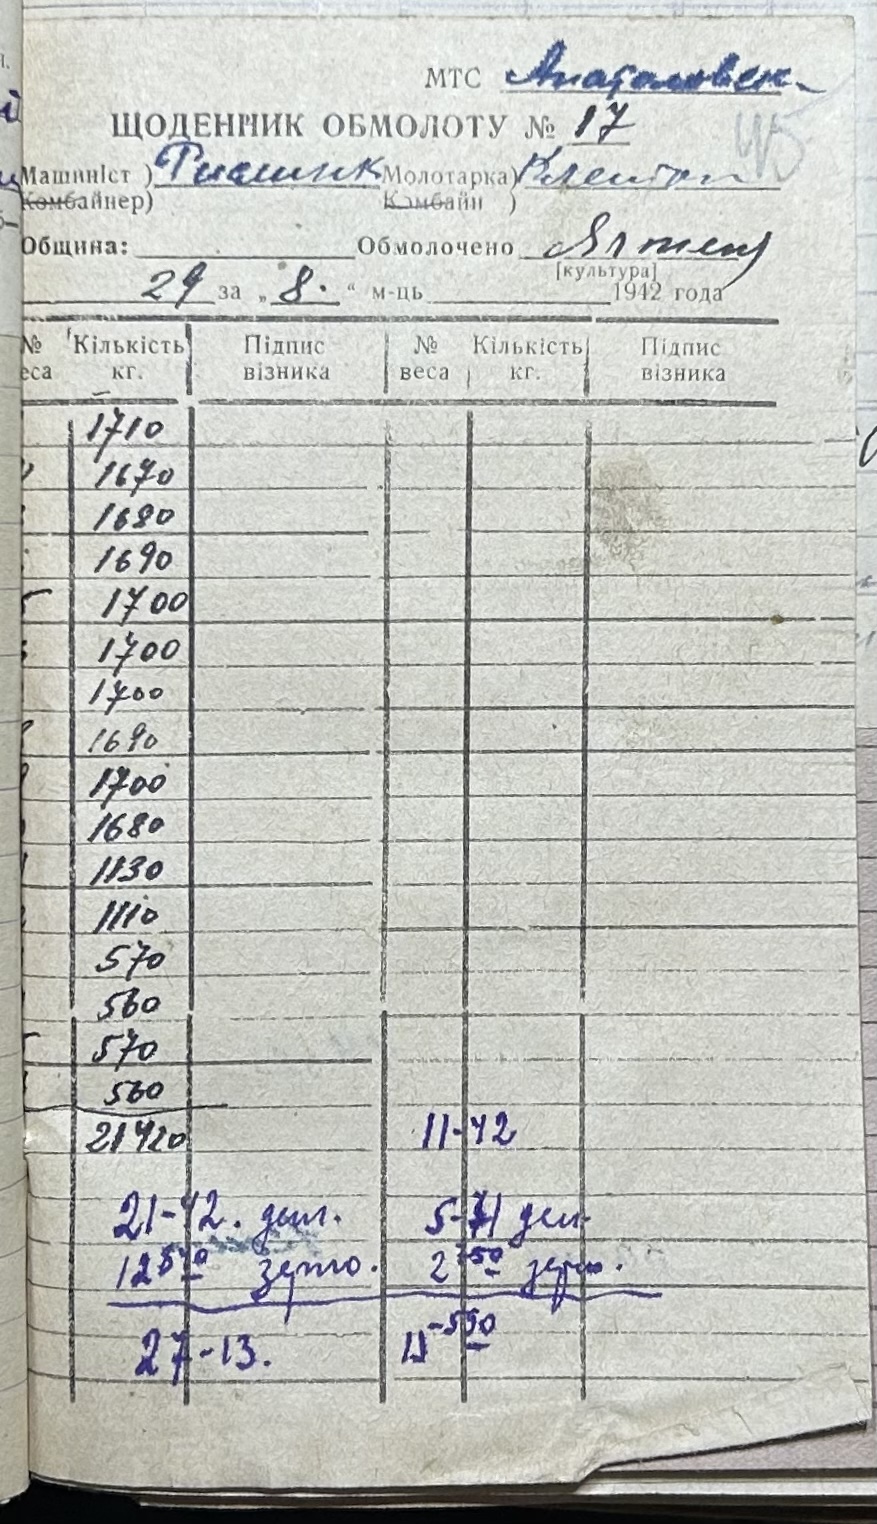 МТС
ЩОДЕННИК ОБМОЛОТУ № 17
Машиніст ) Молотарка)
Комбайнер) Комбайн )
Община: Обмолочено Ячмень
[культура]
29 за „8.“ м-ць 1942 года
№ Кількість Підпис № Кількість Підпис
веса кг. візника веса кг. візника
1710
1670
1680
1690
1700
1700
1700
1690
1700
1680
1130
1110
570
560
570
560
21420 11-42
21-42. ден. 5-71 ден.
зерно. 2 750 зерно.
27-13.